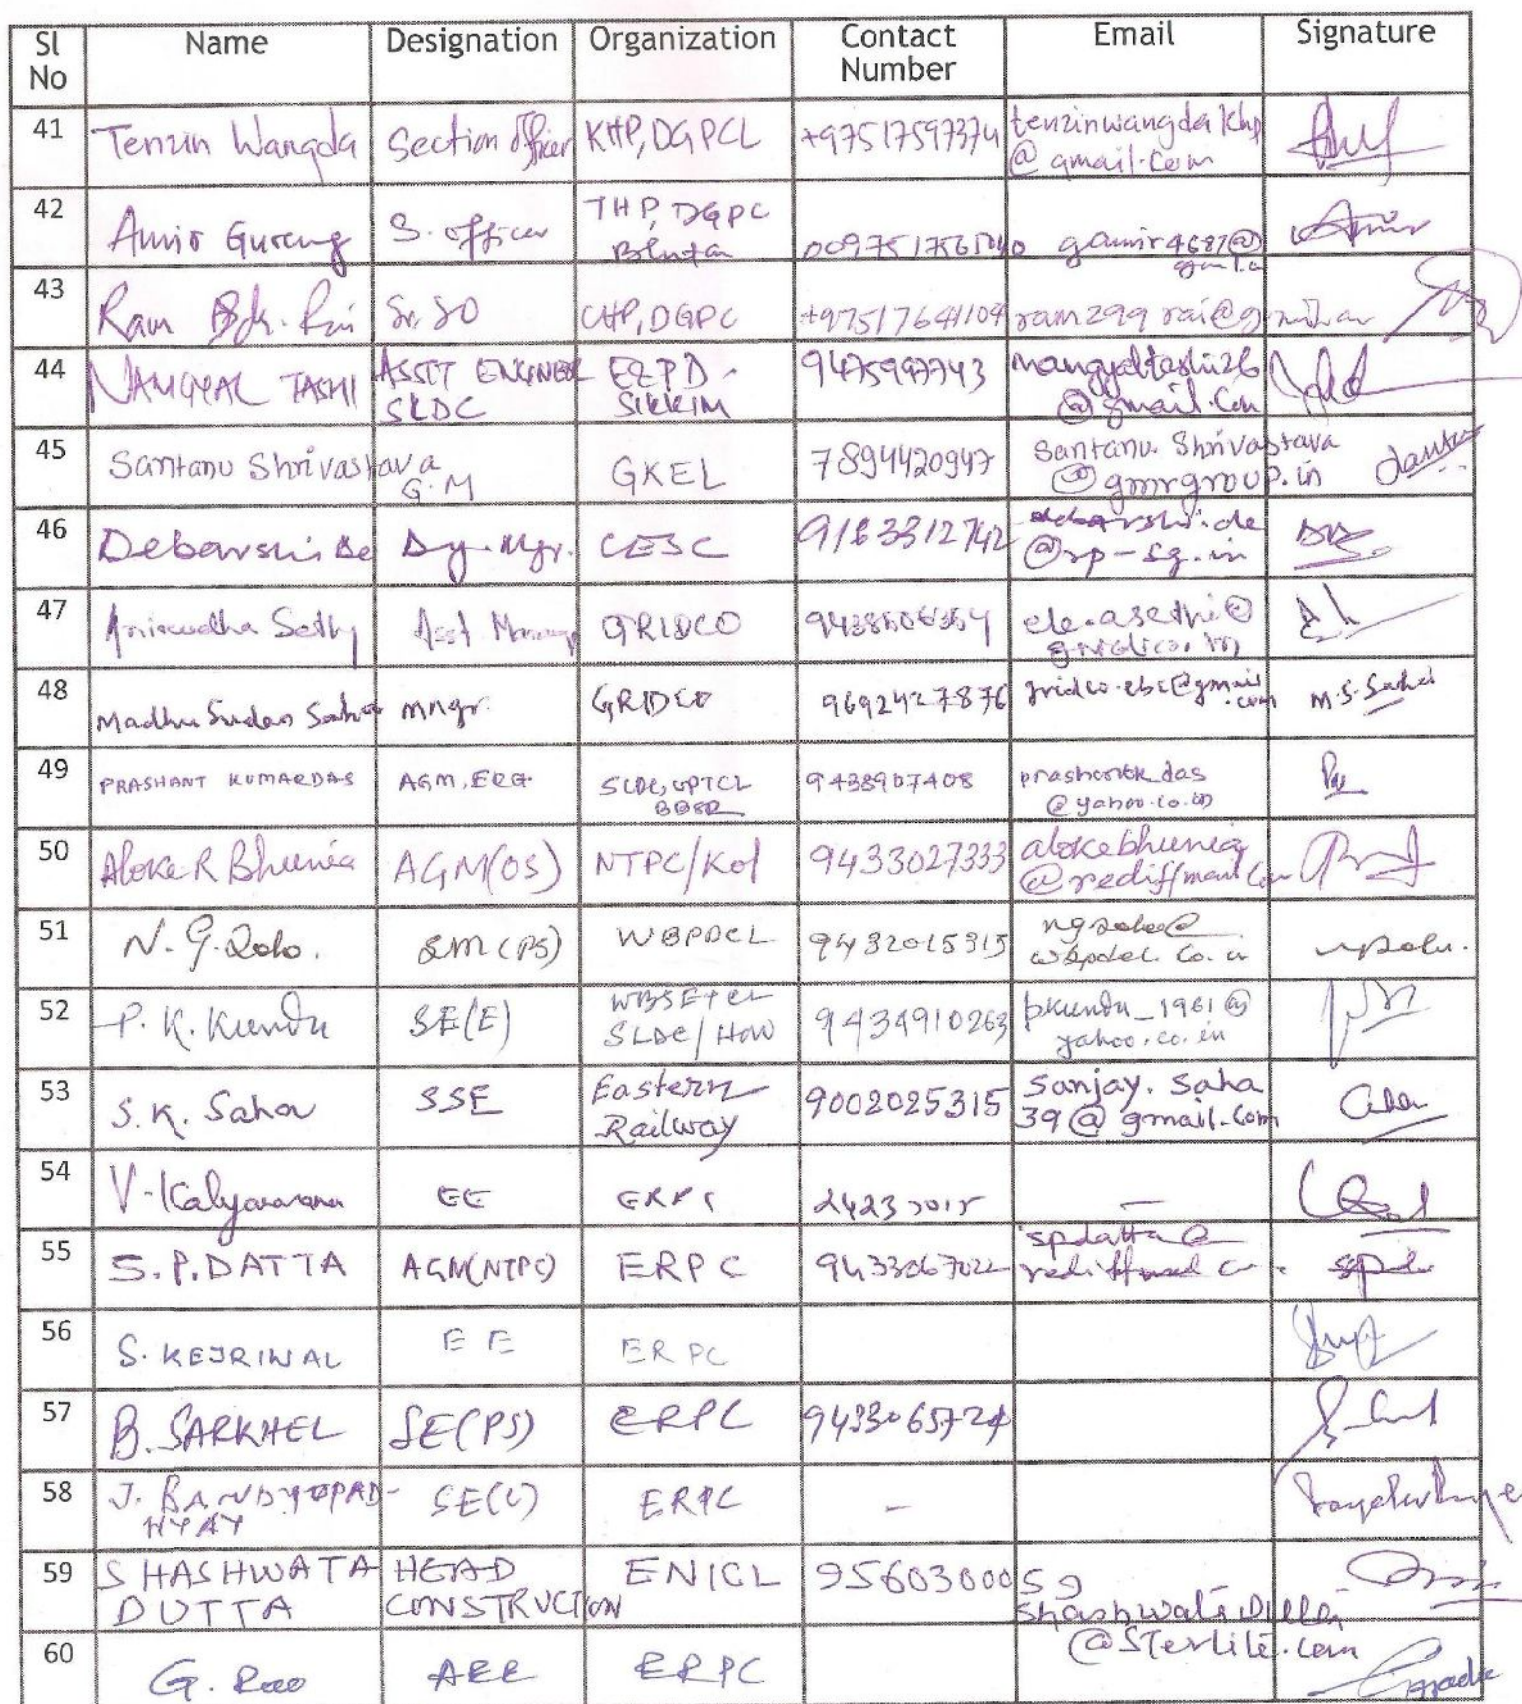 Sl No Name Designation Organization Contact Number Email Signature
41 Tenzin Wangda Section Officer KHP, DGPCL +97517597374 tenzinwangdakhp
@gmail.com
42 Amir Gurung S. officer THP, DGPC
Bhutan
43 Ram Bdr. Rai Sr. SO CHP, DGPC +97517641109 ram299rai@gmail.com
44 NAMGYAL TASHI ASSTT ENGINEER
SLDC
E&PD
SIKKIM
namgyaltashi26
@gmail.com
45 Santanu Shrivastava G.M GKEL 7894420947 Santanu.Shrivastava
@gmrgroup.in
46 Debarshi De Dy. Mgr. CESC 9163312742 debarshi.de
@rp-sg.in
47 Anirudha Sethy Asst Manager GRIDCO ele.asethi@
gridco.in
48 Madhu Sudan Sahoo mngr. GRIDCO 9692427876 gridco.ebc@gmail
.com
M.S. Sahoo
49 PRASHANT KUMAR DAS AGM, ERG. SLDC, OPTCL
BBSR
9438907408 prashantk_das
@yahoo.co.in
50 Aloke R Bhunia AGM(OS) NTPC/Kol 9433027333 alokebhunia
@rediffmail.com
51 N. G. WBPDCL 9432015315
wbpdcl.co.in
52 P. K. Kundu SE(E) WBSETCL
SLDC/HOW
9434910263 pkundu_1961@
yahoo.co.in
53 S. K. Saha SSE Eastern
Railway
9002025315 Sanjay.Saha
39@gmail.com
54 V. Kalyanarama EE ERPC —
55 S.P. DATTA AGM(NTPC) ERPC 9433067022 spdatta@
rediffmail
56 S. KEJRIWAL EE ERPC
57 B. SARKHEL SE(PS) ERPC
58 J. BANDYOPAD-
HYAY
SE(C) ERPC –
59 SHASHWATA
DUTTA
HEAD
CONSTRUCTION
ENICL 9560300059
@sterlite.com
60 G. Rao AEE ERPC